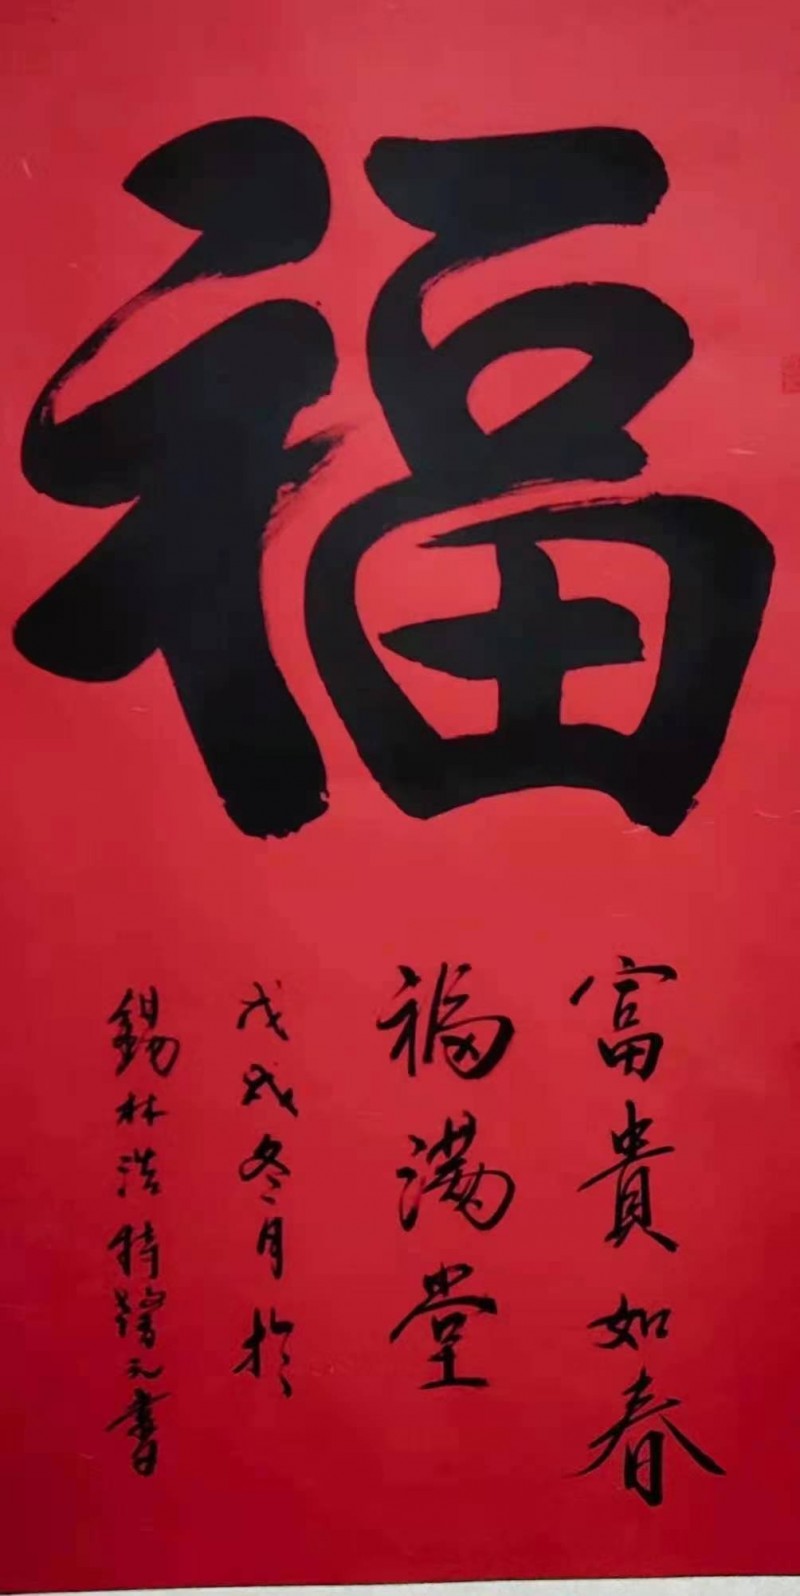 福
富貴如春
福满堂
戊戌冬月於
錫林浩特 元書